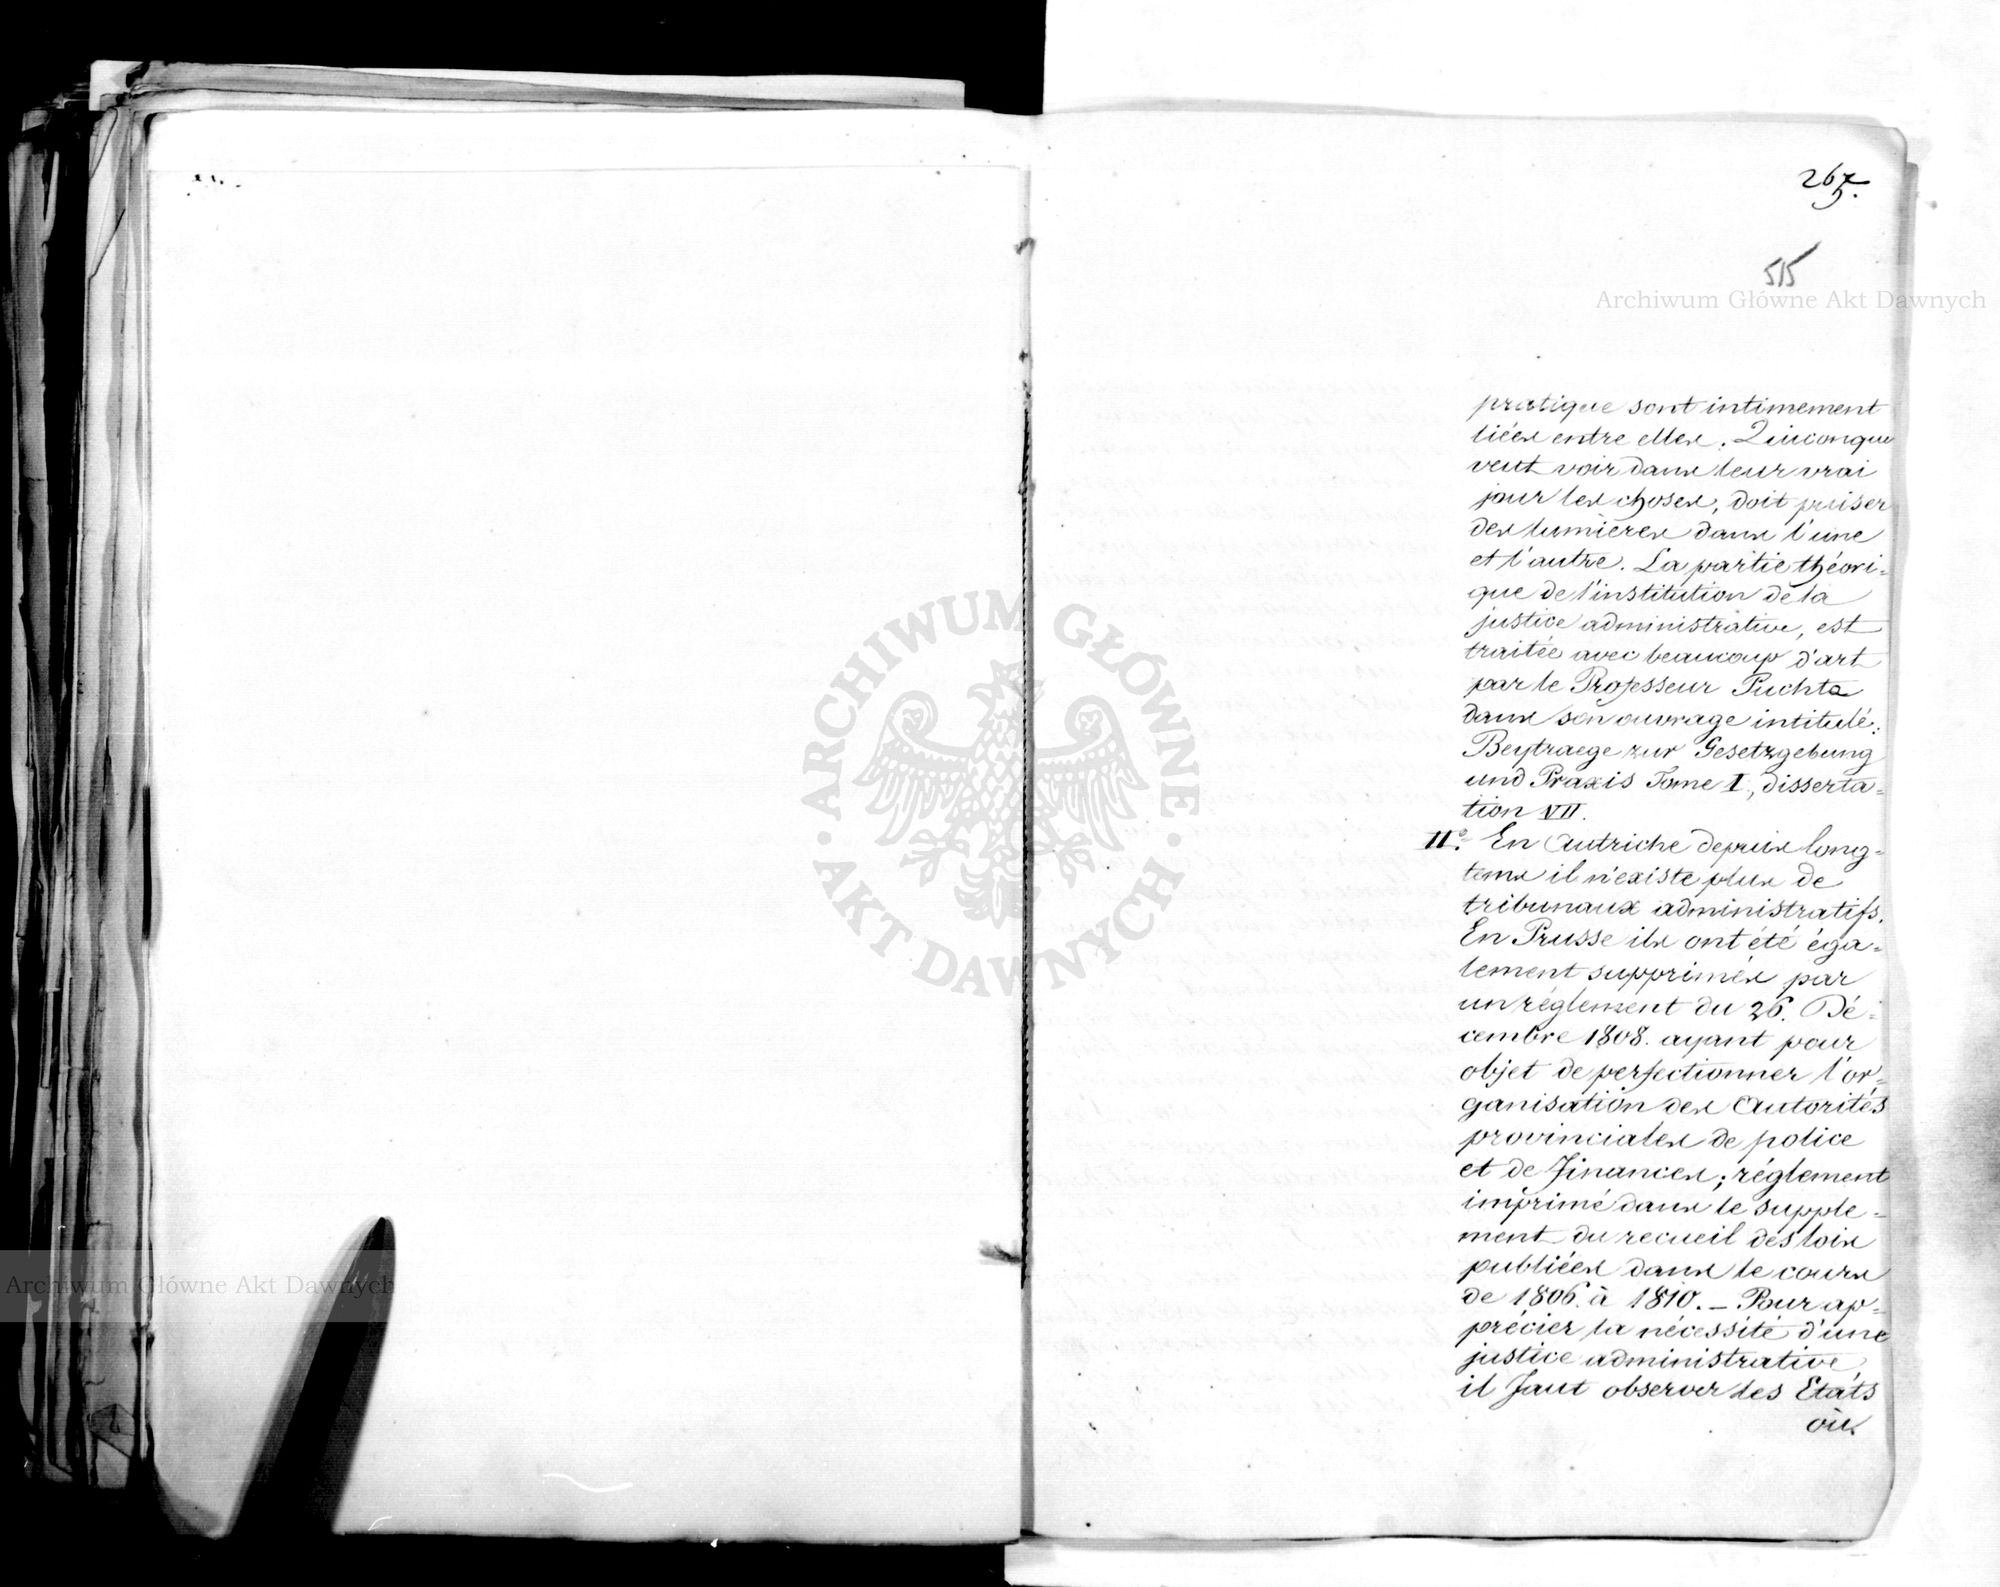 267.
515
Archiwum Główne Akt Dawnych
pratique sont intimement
liées entre elles. Quiconque
veut voir dans leur vrai
jour les choses, doit puiser
des lumières dans l'une
et l'autre. La partie théori=
que de l'institution de la
justice administrative, est
traitée avec beaucoup d'art
par le Professeur Puchta
dans son ouvrage intitulé:
Beytraege zur Gesetzgebung
und Praxis Tome I, disserta=
tion VII.
II° En Autriche depuis long=
tems il n'existe plus de
tribunaux administratifs.
En Prusse ils ont été éga=
lement supprimés par
un réglement du 26. Dé=
cembre 1808. ayant pour
objet de perfectionner l'or=
ganisation des Autorités
provinciales de police
et de finances; réglement
imprimé dans le supple=
ment du recueil des loix
publiées dans le cours
de 1806. à 1810. — Pour ap=
précier la nécessité d'une
justice administrative
il faut observer les Etats
où
ARCHIWUM GŁÓWNE
AKT DAWNYCH
Archiwum Główne Akt Dawnych